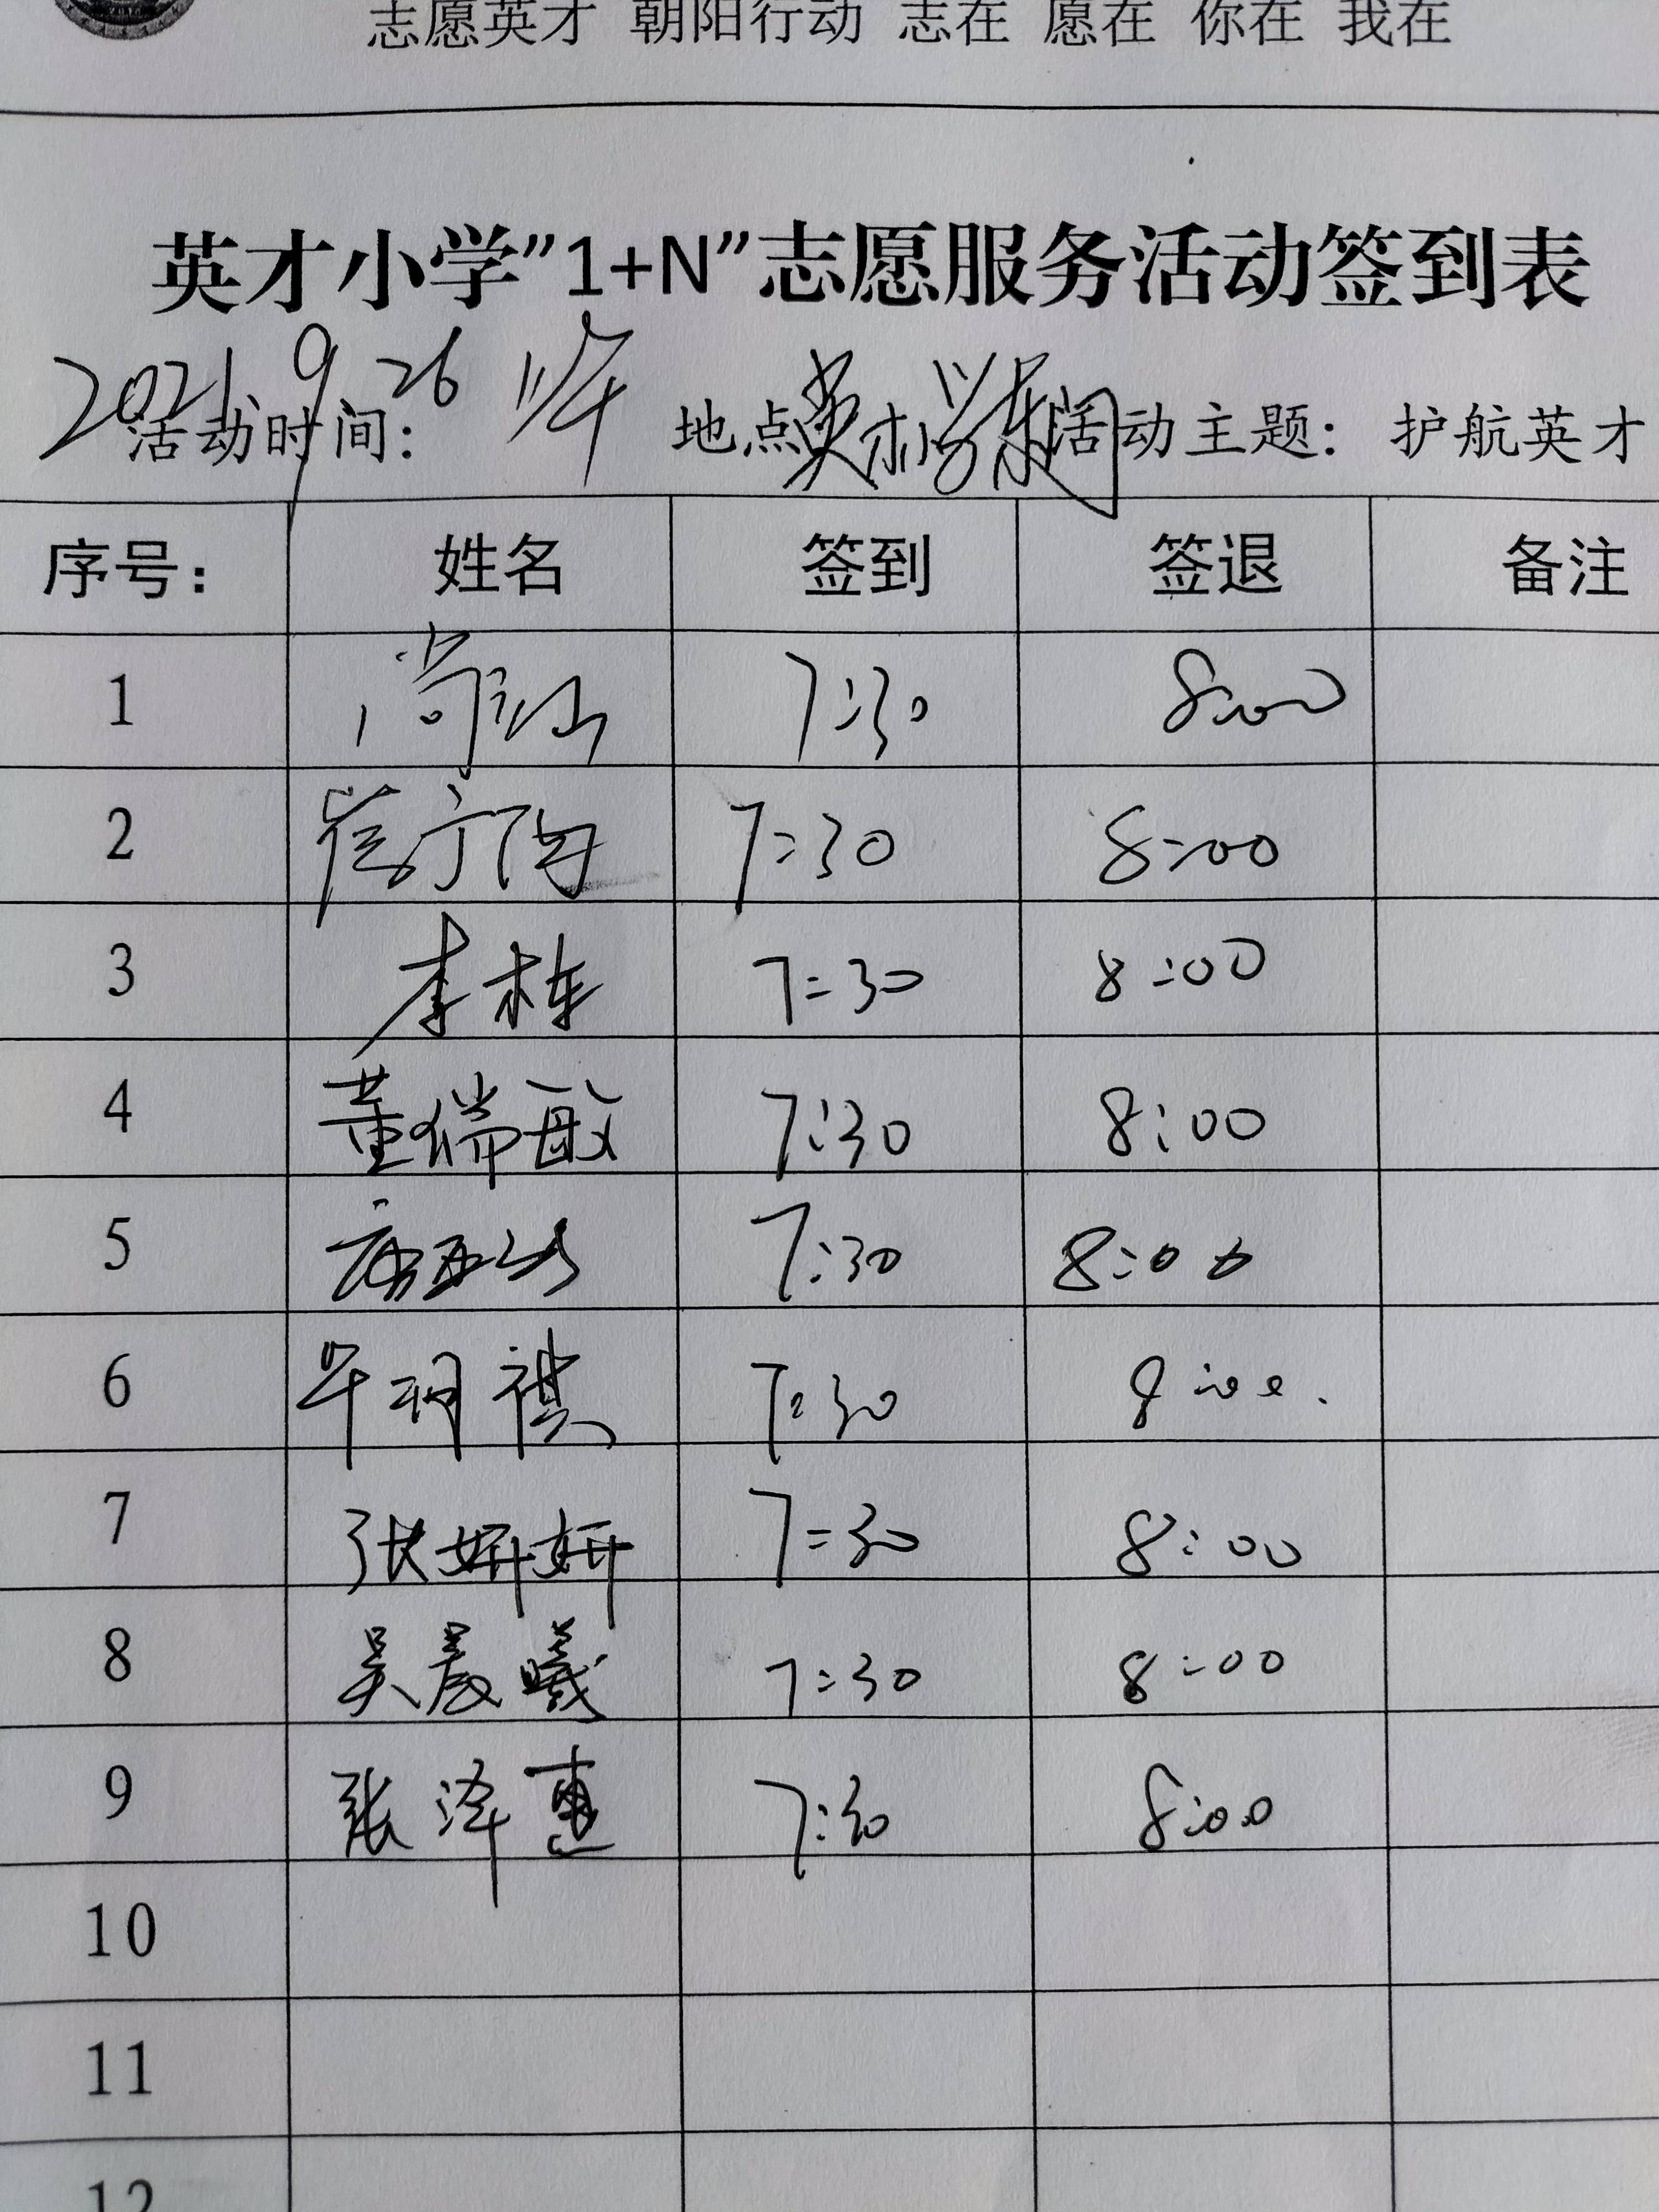 志愿英才 朝阳行动 志在 愿在 你在 我在
英才小学”1+N”志愿服务活动签到表
活动时间: 2021.9.26 上午 地点 英才小学东门 活动主题: 护航英才
序号: 姓名 签到 签退 备注
1 7:30 8:00
2 7:30 8:00
3 李栋 7:30 8:00
4 董瑞敏 7:30 8:00
5 7:30 8:00
6 7:30 8:00
7 张妍妍 7:30 8:00
8 吴晨曦 7:30 8:00
9 张泽惠 7:30 8:00
10
11
12